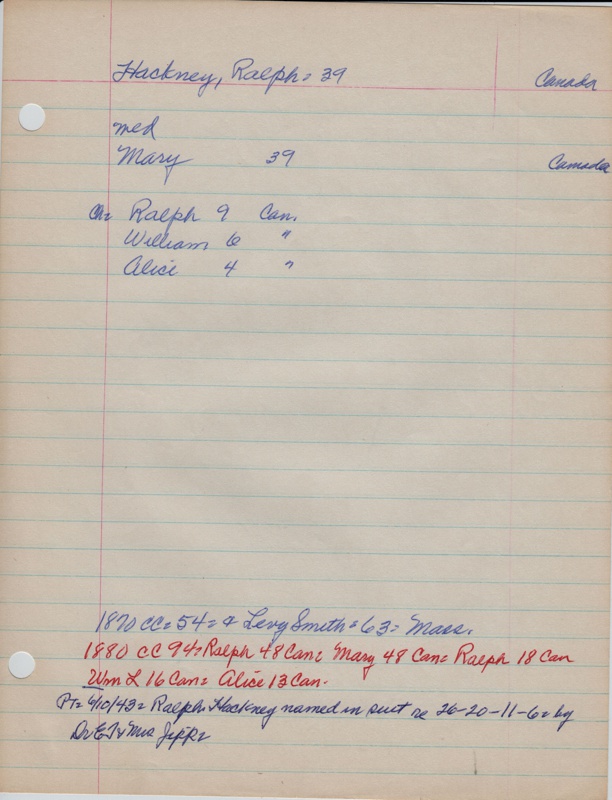 Hackney, Ralph = 39 Canada
med
Mary 39 Canada
Ch= Ralph 9 Can.
William 6 "
Alice 4 "
1870 CC = 54 = & Levy Smith = 63 = Mass.
1880 CC 94 = Ralph 48 Can = Mary 48 Can = Ralph 18 Can
Wm L 16 Can = Alice 13 Can.
PT = 6/10/43 = Ralph Hackney named in suit re 26-20-11-6 = by
Dr E T & Mrs